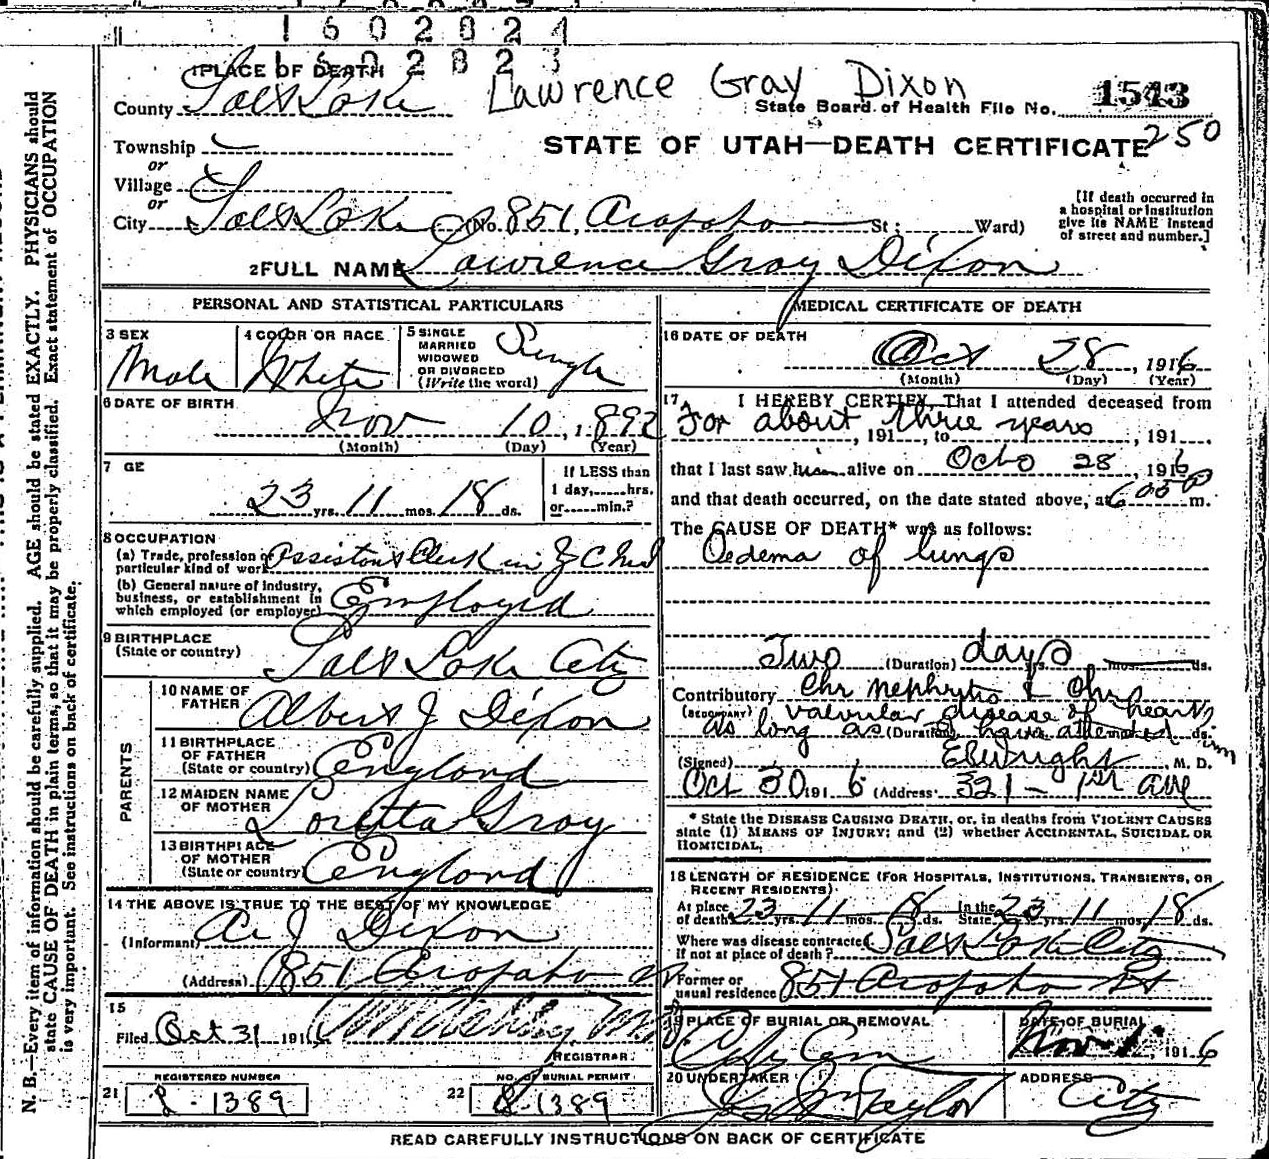 1602824
1602823
1 PLACE OF DEATH
Lawrence Gray Dixon
County Salt Lake
State Board of Health File No. 1543
250
Township
STATE OF UTAH—DEATH CERTIFICATE
or
Village
or
City Salt Lake City No. 851, Arapaho St; Ward)
[If death occurred in
a hospital or institution
give its NAME instead
of street and number.]
2 FULL NAME Lawrence Gray Dixon
PERSONAL AND STATISTICAL PARTICULARS
3 SEX
Male
4 COLOR OR RACE
White
5 SINGLE
MARRIED
WIDOWED
OR DIVORCED
(Write the word)
Single
6 DATE OF BIRTH
Nov 10, 1892
(Month) (Day) (Year)
7 GE
23 yrs. 11 mos. 18 ds.
If LESS than
1 day,.....hrs.
or.....min.?
8 OCCUPATION
(a) Trade, profession or
particular kind of work Assistant Clerk in
(b) General nature of industry,
business, or establishment in
which employed (or employer) Employed
9 BIRTHPLACE
(State or country) Salt Lake City
PARENTS
10 NAME OF
FATHER Albert J Dixon
11 BIRTHPLACE
OF FATHER
(State or country) England
12 MAIDEN NAME
OF MOTHER Loretta Gray
13 BIRTHPLACE
OF MOTHER
(State or country) England
14 THE ABOVE IS TRUE TO THE BEST OF MY KNOWLEDGE
(Informant) A. J Dixon
(Address) 851 Arapaho
15
Filed Oct 31 191 6
REGISTRAR.
REGISTERED NUMBER
21 1389
NO. OF BURIAL PERMIT
22 1389
MEDICAL CERTIFICATE OF DEATH
16 DATE OF DEATH
Oct 28, 1916
(Month) (Day) (Year)
17 I HEREBY CERTIFY, That I attended deceased from
For about three years
, 191...., to , 191....
that I last saw him alive on Oct 28, 1916
and that death occurred, on the date stated above, at m.
The CAUSE OF DEATH* was as follows:
Oedema of lungs
Two (Duration) days yrs. mos. ds.
Contributory Chr nephritis & Chr
(SECONDARY) valvular disease of heart
as long as (Duration) have attended ds.
(Signed) EWright, M. D.
Oct 30 191 6 (Address) 321 - 1st ave
* State the DISEASE CAUSING DEATH, or, in deaths from VIOLENT CAUSES
state (1) MEANS OF INJURY; and (2) whether ACCIDENTAL, SUICIDAL OR
HOMICIDAL.
18 LENGTH OF RESIDENCE (FOR HOSPITALS, INSTITUTIONS, TRANSIENTS, OR
RECENT RESIDENTS)
At place
of death 23 yrs. 11 mos. 18 ds. In the State 23 yrs. 11 mos. 18 ds.
Where was disease contracted
If not at place of death? Salt Lake City
Former or
usual residence 851 Arapaho St
19 PLACE OF BURIAL OR REMOVAL
City Cem
DATE OF BURIAL
Nov 1, 1916
20 UNDERTAKER
Taylor
ADDRESS
City
READ CAREFULLY INSTRUCTIONS ON BACK OF CERTIFICATE
N. B.—Every item of information should be carefully supplied. AGE should be stated EXACTLY. PHYSICIANS should
state CAUSE OF DEATH in plain terms, so that it may be properly classified. Exact statement of OCCUPATION
is very important. See instructions on back of certificate.